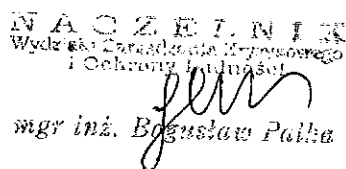 NACZELNIK
Wydziału Zarządzania Kryzysowego
i Ochrony Ludności
mgr inż. Bogusław Palka